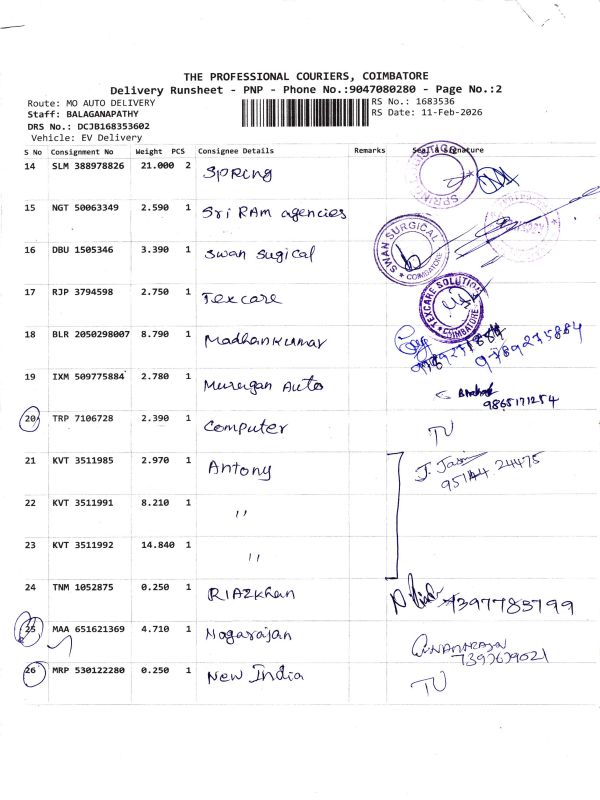 THE PROFESSIONAL COURIERS, COIMBATORE
Delivery Runsheet - PNP - Phone No.:9047080280 - Page No.:2
Route: MO AUTO DELIVERY
Staff: BALAGANAPATHY
DRS No.: DCJB168353602
Vehicle: EV Delivery
RS No.: 1683536
RS Date: 11-Feb-2026
S No Consignment No Weight PCS Consignee Details Remarks Seal & Signature
14 SLM 388978826 21.000 2 Spring
15 NGT 50063349 2.590 1 Sri RAM agencies
16 DBU 1505346 3.390 1 Swan Sugical SWAN SURGICAL COIMBATORE
17 RJP 3794598 2.750 1 Texcare TEXCARE SOLUTION COIMBATORE
18 BLR 2050298007 8.790 1 Madhankumar 9789235884
19 IXM 509775884 2.780 1 Murugan Auto 9865171254
20 TRP 7106728 2.390 1 Computer TU
21 KVT 3511985 2.970 1 Antony 95144 24475
22 KVT 3511991 8.210 1 "
23 KVT 3511992 14.840 1 "
24 TNM 1052875 0.250 1 RIAZkhan 7397783799
25 MAA 651621369 4.710 1 Nagarajan
26 MRP 530122280 0.250 1 New India TU